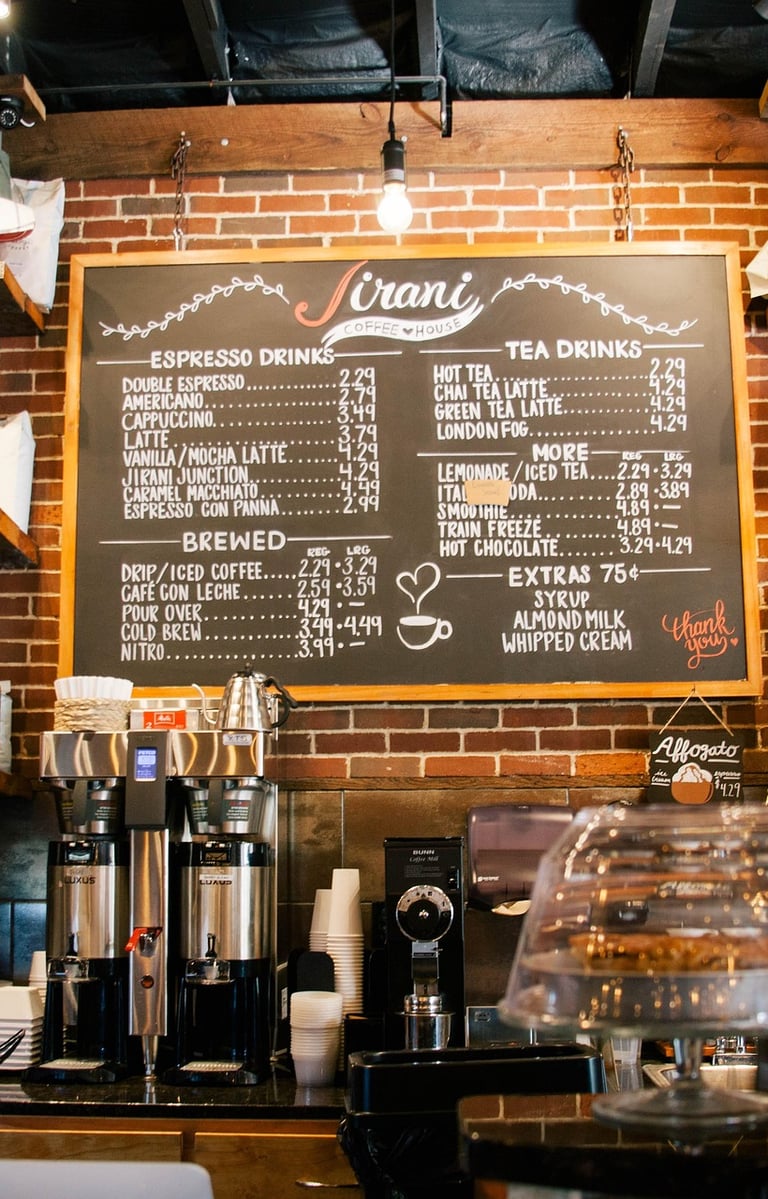 Jirani
COFFEE HOUSE
ESPRESSO DRINKS
DOUBLE ESPRESSO.............. 2.29
AMERICANO..................... 2.79
CAPPUCCINO.................... 3.49
LATTE......................... 3.79
VANILLA/MOCHA LATTE...... 4.29
JIRANI JUNCTION............. 4.29
CARAMEL MACCHIATO....... 4.49
ESPRESSO CON PANNA....... 2.99
BREWED
REG LRG
DRIP/ICED COFFEE..... 2.29 • 3.29
CAFÉ CON LECHE....... 2.59 • 3.59
POUR OVER............ 4.29 • —
COLD BREW............ 3.49 • 4.49
NITRO................ 3.99 • —
TEA DRINKS
HOT TEA..................... 2.29
CHAI TEA LATTE............ 4.29
GREEN TEA LATTE.......... 4.29
LONDON FOG................ 4.29
MORE
REG LRG
LEMONADE/ICED TEA.... 2.29 • 3.29
2.89 • 3.89
SMOOTHIE............. 4.89 • —
TRAIN FREEZE......... 4.89 • —
HOT CHOCOLATE....... 3.29 • 4.29
EXTRAS 75¢
SYRUP
ALMOND MILK
WHIPPED CREAM
thank
you
Affogato
ice cream
espresso
$4.29
Melitta
LUXUS
LUXUS
BUNN
Coffee Mill